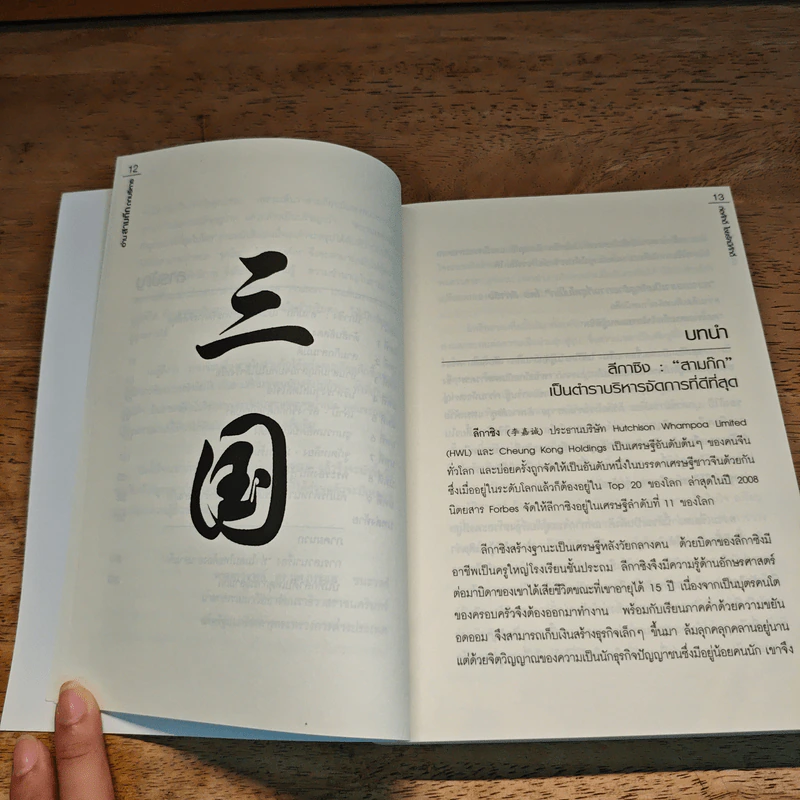 12
อ่านสามก๊ก ถกบริหาร
三
国
13
บทนำ
ลีกาชิง : “สามก๊ก”
เป็นตำราบริหารจัดการที่ดีที่สุด
ลีกาชิง (李嘉诚) ประธานบริษัท Hutchison Whampoa Limited
(HWL) และ Cheung Kong Holdings เป็นเศรษฐีอันดับต้นๆ ของคนจีน
ทั่วโลก และบ่อยครั้งถูกจัดให้เป็นอันดับหนึ่งในบรรดาเศรษฐีชาวจีนด้วยกัน
ซึ่งเมื่ออยู่ในระดับโลกแล้วก็ต้องอยู่ใน Top 20 ของโลก ล่าสุดในปี 2008
นิตยสาร Forbes จัดให้ลีกาชิงอยู่ในเศรษฐีลำดับที่ 11 ของโลก
ลีกาชิงสร้างฐานะเป็นเศรษฐีหลังวัยกลางคน ด้วยบิดาของลีกาชิงมี
อาชีพเป็นครูใหญ่โรงเรียนชั้นประถม ลีกาชิงจึงมีความรู้ด้านอักษรศาสตร์
ต่อมาบิดาของเขาได้เสียชีวิตขณะที่เขาอายุได้ 15 ปี เนื่องจากเป็นบุตรคนโต
ของครอบครัวจึงต้องออกมาทำงาน พร้อมกับเรียนภาคค่ำด้วยความขยัน
อดออม จึงสามารถเก็บเงินสร้างธุรกิจเล็กๆ ขึ้นมา ล้มลุกคลุกคลานอยู่นาน
แต่ด้วยจิตวิญญาณของความเป็นนักธุรกิจปัญญาชนซึ่งมีอยู่น้อยคนนัก เขาจึง